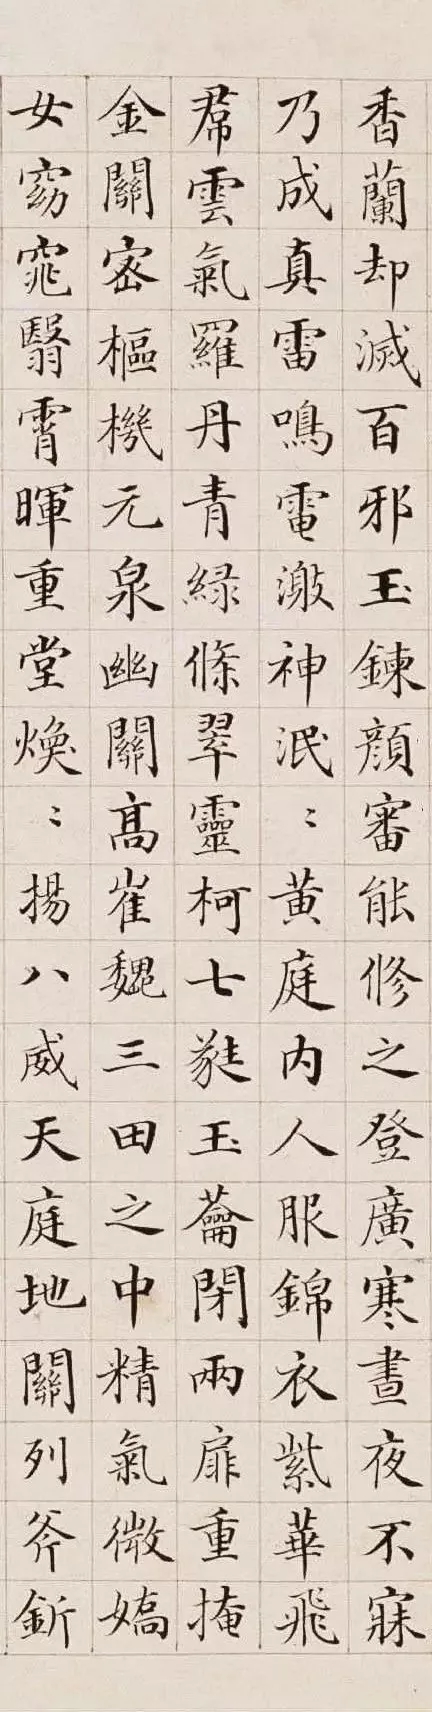 香蘭却滅百邪玉鍊顔審能修之登廣寒晝夜不寐
乃成真雷鳴電激神泯〻黄庭内人服錦衣紫華飛
帬雲氣羅丹青緑條翠靈柯七蕤玉蘥閉兩扉重掩
金關密樞機元泉幽關髙崔魏三田之中精氣微嬌
女窈窕翳霄暉重堂煥〻揚八威天庭地關列斧釿